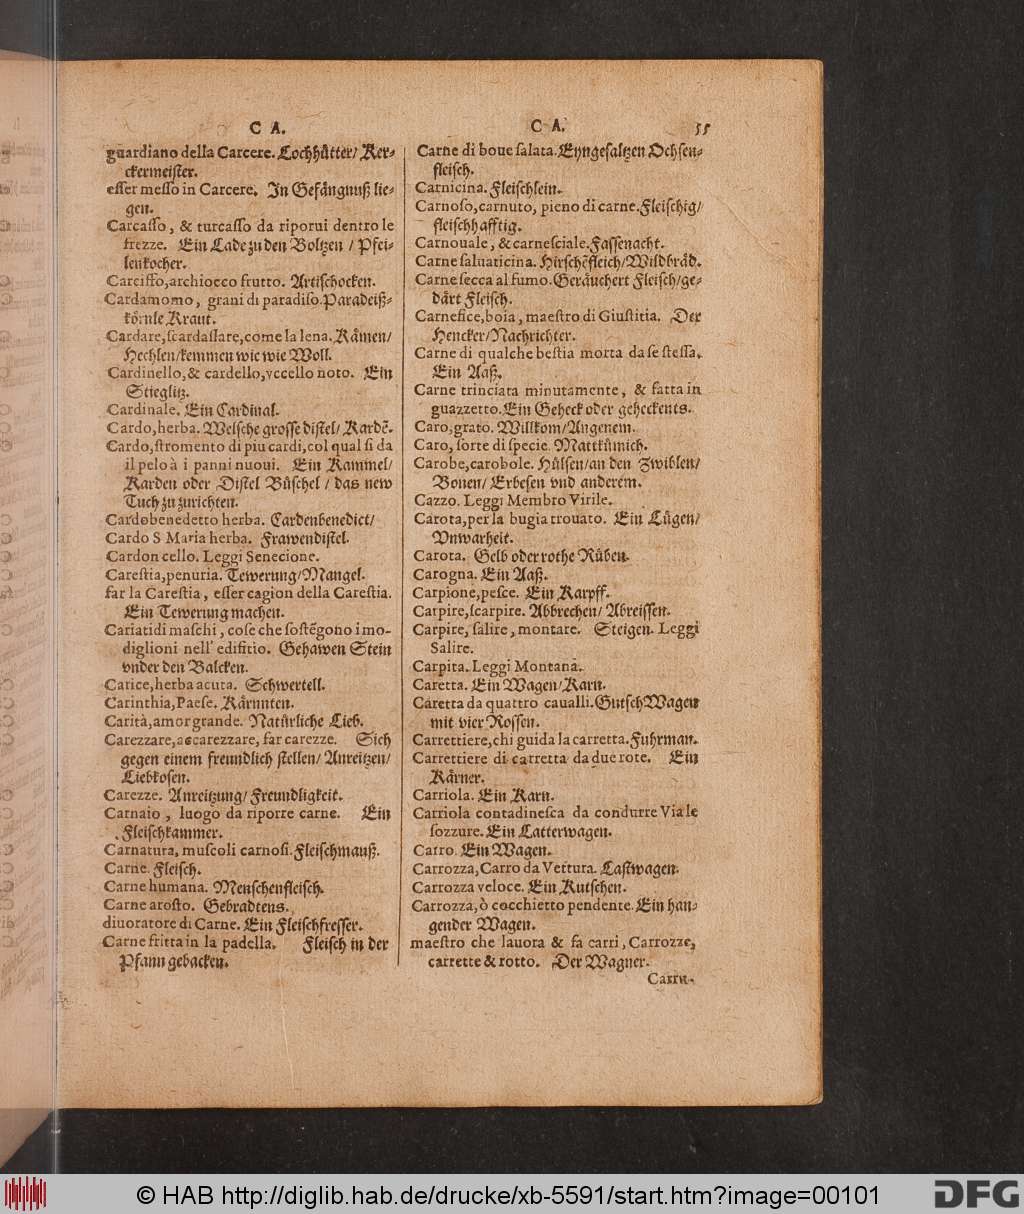 C A.
guardiano della Carcere. Lochhůtter/ Ker-
ckermeister.
esser messo in Carcere. In Gefångnuß lie-
gen.
Carcasso, & turcasso da riporui dentro le
frezze. Ein Lade zu den Boltzen / Pfei-
lenkocher.
Carcioffo, archiocco frutto. Artischocken.
Cardamomo, grani di paradiso. Paradeiß-
kôrnle Kraut.
Cardare, scardassare, come la lena. Kåmen/
Hechlen/kemmen wie wie Woll.
Cardinello, & cardello, vccello noto. Ein
Stieglitz.
Cardinale. Ein Cardinal.
Cardo, herba. Welsche grosse distel/ Kardẽ.
Cardo, stromento di piu cardi, col qual si da
il pelo à i panni nuoui. Ein Kammel/
Karden oder Distel Bůschel / das new
Tuch zu zurichten.
Cardobenedetto herba. Cardenbenedict/
Cardo S Maria herba. Frawendistel.
Cardon cello. Leggi Senecione.
Carestia, penuria. Tewerung/Mangel.
far la Carestia, esser cagion della Carestia.
Ein Tewerung machen.
Cariatidi maschi, cose che sostẽgono i mo-
diglioni nell' edifitio. Gehawen Stein
vnder den Balcken.
Carice, herba acuta. Schwertell.
Carinthia, Paese. Kårnnten.
Carità, amor grande. Natůrliche Lieb.
Carezzare, accarezzare, far carezze. Sich
gegen einem freundlich stellen/ Anreitzen/
Liebkosen.
Carezze. Anreitzung/ Freundligkeit.
Carnaio, luogo da riporre carne. Ein
Fleischkammer.
Carnatura, muscoli carnosi. Fleischmauß.
Carne. Fleisch.
Carne humana. Menschenfleisch.
Carne arosto. Gebradtens.
diuoratore di Carne. Ein Fleischfresser.
Carne fritta in la padella. Fleisch in der
Pfann gebacken.
C A. 55
Carne di boue salata. Eyngesaltzen Ochsen-
fleisch.
Carnicina. Fleischlein.
Carnoso, carnuto, pieno di carne. Fleischig/
fleischhafftig.
Carnouale, & carnesciale. Fassenacht.
Carne saluaticina. Hirschẽfleich/Wildbråd.
Carne secca al fumo. Geråuchert Fleisch/ge-
dårt Fleisch.
Carnefice, boia, maestro di Giustitia. Der
Hencker/Nachrichter.
Carne di qualche bestia morta da se stessa.
Ein Aaß.
Carne trinciata minutamente, & fatta in
guazzetto. Ein Geheck oder geheckents.
Caro, grato. Willkom/Angenem.
Caro, sorte di specie. Mattkůmich.
Carobe, carobole. Hůlsen/an den Zwiblen/
Bonen/ Erbesen vnd anderem.
Cazzo. Leggi Membro Virile.
Carota, per la bugia trouato. Ein Lůgen/
Vnwarheit.
Carota. Gelb oder rothe Růben.
Carogna. Ein Aaß.
Carpione, pesce. Ein Karpff.
Carpire, scarpire. Abbrechen/ Abreissen.
Carpire, salire, montare. Steigen. Leggi
Salire.
Carpita. Leggi Montana.
Caretta. Ein Wagen/Karn.
Caretta da quattro caualli. Gutsch Wagen
mit vier Rossen.
Carrettiere, chi guida la carretta. Fuhrman.
Carrettiere di carretta da due rote. Ein
Kårner.
Carriola. Ein Karn.
Carriola contadinesca da condurre Via le
sozzure. Ein Latterwagen.
Carro. Ein Wagen.
Carrozza, Carro da Vettura. Lastwagen.
Carrozza veloce. Ein Kutschen.
Carrozza, ò cocchietto pendente. Ein han-
gender Wagen.
maestro che lauora & fa carri, Carrozze,
carrette & rotto. Der Wagner.
Carru-
© HAB http://diglib.hab.de/drucke/xb-5591/start.htm?image=00101
DFG